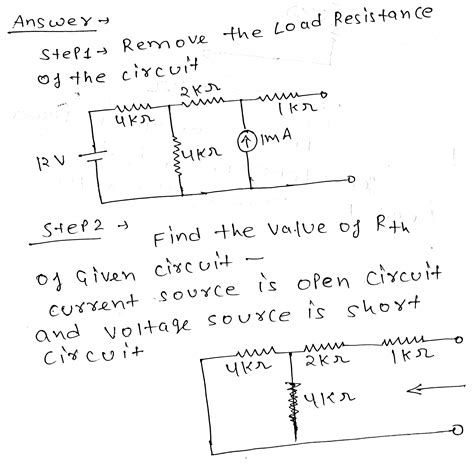 Answer →
Step1 → Remove the Load Resistance
of the circuit
2KΩ
4KΩ
1KΩ
12V
4KΩ
1mA
Step2 → Find the value of Rth
of Given circuit –
current source is open circuit
and voltage source is short
circuit
4KΩ 2KΩ 1KΩ
4KΩ